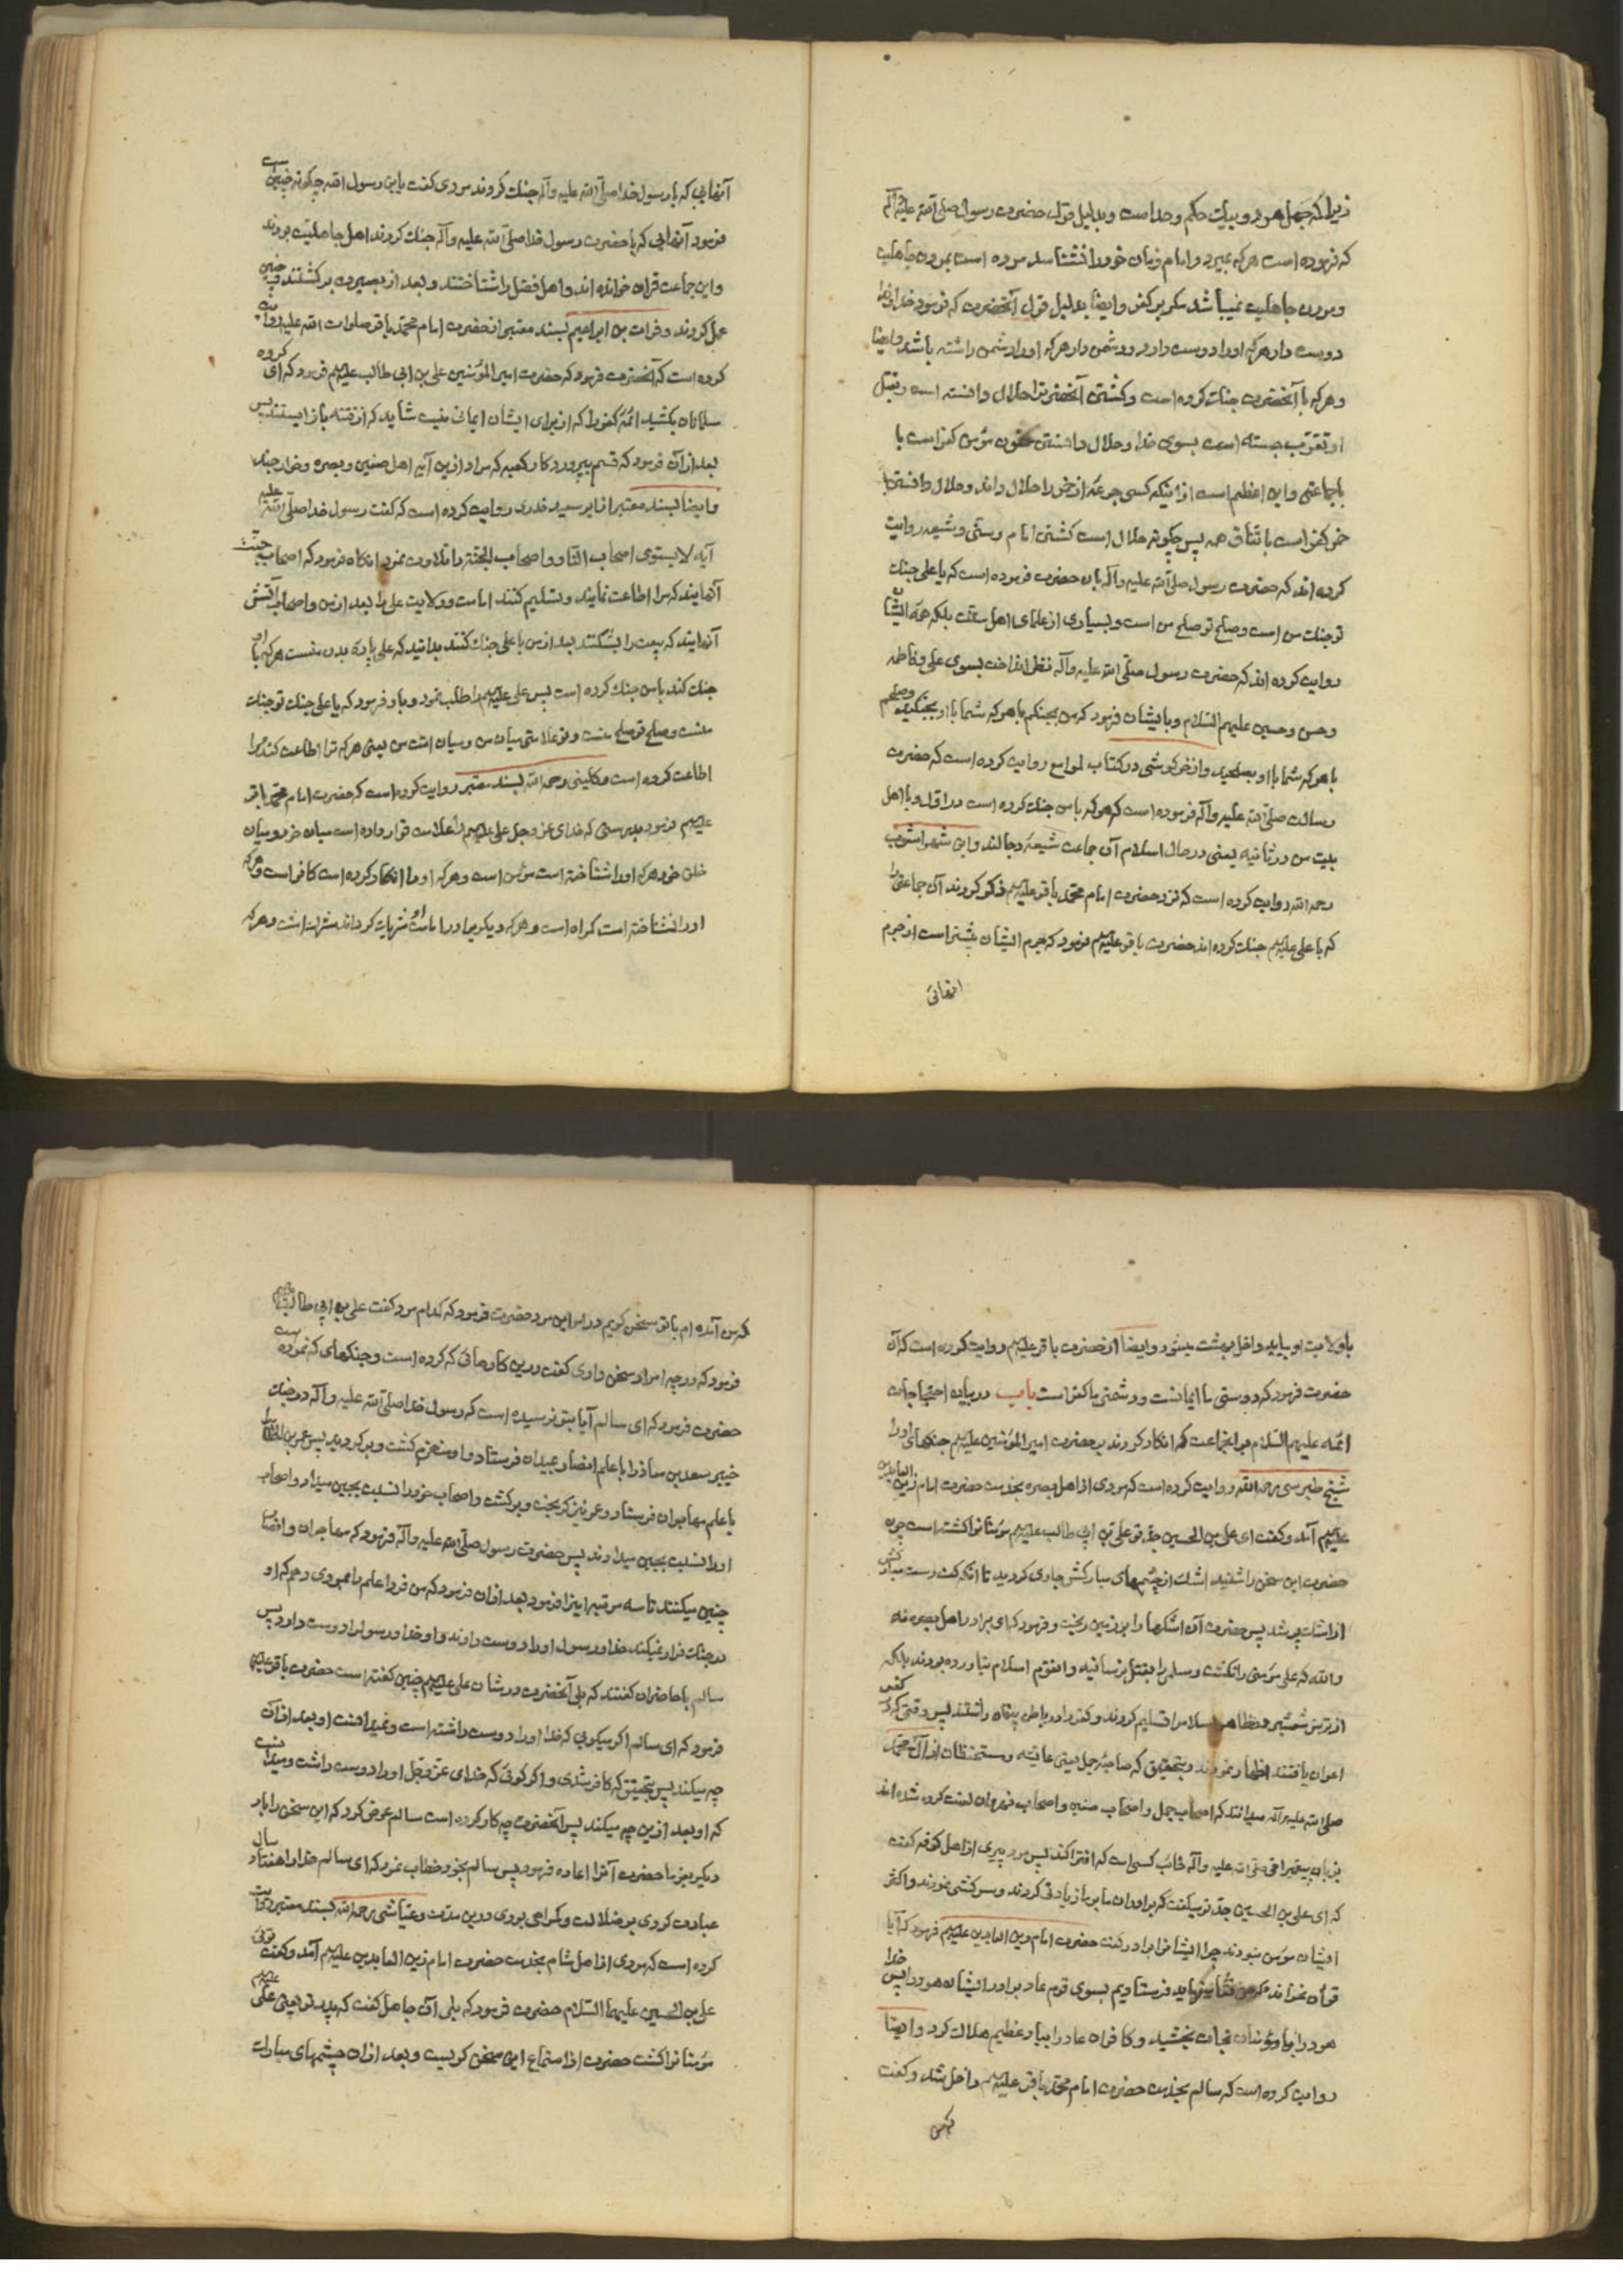 زیرا که جهل هر دو بیک حکم وحد است وبدلیل قول حضرت رسول صلی الله علیه وآله
که فرموده است هر که بمیرد وامام زمان خود را نشناسد مرده است بمردن جاهلیت
ومردن جاهلیت نمیباشد مگر بر کفر وایضا بدلیل قول آنحضرت که فرمود خداوندا
دوست دار هر که او را دوست دارد ودشمن دار هر که او را دشمن داشته باشد وایضا
وهر که با آنحضرت جنک کرده است وکشتن آنحضرترا حلال دانسته است وبقتل
او تقرب جسته است بسوی خدا وحلال دانستن خون مؤمن کفر است با
باجماعتی واین اعظم است از اینکه کسی جرعه از خمر را حلال داند وحلال دانستن
خمر کفر است باتفاق همه پس چگونه حلال است کشتن امام وسنی وشیعه روایت
کرده اند که حضرت رسول صلی الله علیه وآله بان حضرت فرموده است که یا علی جنک
تو جنک من است وصلح تو صلح من است وبسیاری از علمای اهل سنت بلکه همه ایشان
روایت کرده اند که حضرت رسول صلی الله علیه وآله نظر انداخت بسوی علی وفاطمه
وحسن وحسین علیهم السلام وبایشان فرمود که من بجنکم باهر که شما با او بجنکید وصلحم
باهر که شما با او بصلحید وازخرکوشی در کتاب لوامع روایت کرده است که حضرت
رسالت صلی الله علیه وآله فرموده است که هر که با من جنک کرده است در اول وبا اهل
بیت من در ثانیه یعنی در حال اسلام آن جماعت شیعه دجالند وابن شهر اشوب
رحمه الله روایت کرده است که نزد حضرت امام محمد باقر علیه السلم ذکر کردند آن جماعتی را
که با علی علیه السلم جنک کرده اند حضرت باقر علیه السلم فرمود که جرم ایشان بیشتر است از جرم
آنهائی
آنهایی که با رسول خدا صلی الله علیه وآله جنک کردند مردی کفت یابن رسول الله چکونه چنین است
فرمود آنهایی که با حضرت رسول خدا صلی الله علیه وآله جنک کردند اهل جاهلیت بودند
واین جماعت قران خوانده اند واهل فضل را شناختند وبعد از بصیرت برکشتند وچنین
عمل کردند وفرات بن ابراهیم بسند معتبر از حضرت امام محمد باقر صلوات الله علیه روایت
کرده است که آنحضرت فرمود که حضرت امیر المؤمنین علی بن ابی طالب علیه السلم فرمود که ای کروه
مسلمانان بکشید ائمه کفر را که از برای ایشان ایمانی نیست شاید که از فتنه باز ایستند پس
بعد از آن فرمود که قسم بپروردکار کعبه که مراد از این آیه اهل صفین وبصره وخوارجند
وایضا بسند معتبر از ابو سعید خدری روایت کرده است که کفت رسول خدا صلی الله علیه
آیه لا یستوی اصحاب النار واصحاب الجنة را تلاوت نمود انکاه فرمود که اصحاب جنت
آنهایند که مرا اطاعت نمایند وتسلیم کنند امامت وولایت علی را بعد از من واصحاب آتش
آنهایند که بیعت را بشکنند بعد از من با علی جنک کنند بدانید که علی پاره بدن منست هر که با او
جنک کند با من جنک کرده است پس علی علیه السلم را طلب نمود وباو فرمود که یا علی جنک تو جنک
منست وصلح تو صلح منست وتو علامتی میان من ومیان امت من یعنی هر که ترا اطاعت کند مرا
اطاعت کرده است وکلینی رحمه الله بسند معتبر روایت کرده است که حضرت امام محمد باقر
علیه السلم فرمود بدرستی که خدای عز وجل علی علیه السلم را علامت قرار داده است میان خود ومیان
خلق خود هر که او را شناخته است مؤمن است وهر که او را انکار کرده است کافر است وهر که
او را نشناخته است کمراه است وهر که دیکریرا در امامت او شریک کرداند مشرک است وهر که
باولایت او بیاید داخل بهشت میشود وایضا از حضرت باقر علیه السلم روایت کرده است که آن
حضرت فرمود که دوستی ما ایمانست ودشمنی ما کفر است باب در بیان احتجاجات
ائمه علیهم السلام بر انجماعت که انکار کردند بر حضرت امیر المؤمنین علیه السلم جنکهای او را
شیخ طبرسی رحمه الله روایت کرده است که مردی از اهل بصره بخدمت حضرت امام زین العابدین
علیه السلم آمد وکفت ای علی بن الحسین جد تو علی بن ابی طالب علیه السلم مؤمنانرا کشته است چون
حضرت این سخن را شنید اشک از چشمهای مبارکش جاری کردید تا انکه کف دست مبارکش
از اشک پر شد پس حضرت آن اشکها را بر زمین ریخت وفرمود که ای برادر اهل بصره نه
والله که علی مؤمنی را نکشت ومسلمرا بقتل نرسانید وانقوم اسلام نیاورده بودند بلکه
از ترس شمشیر بظاهر اسلام را تسلیم کردند وکفر را در باطن پنهان داشتند پس وقتی که بر کفر
اعوان یافتند اظهار نمودند وبتحقیق که صاحبه جمل یعنی عایشه ومستحفظان از آل محمد
صلی الله علیه وآله میدانند که اصحاب جمل واصحاب صفین واصحاب نهروان لعنت کرده شده اند
بزبان پیغمبر امی صلی الله علیه وآله خائب کسی است که افترا کند پس مرد پیری از اهل کوفه کفت
که ای علی بن الحسین جد تو میکفت که برادران ما بر ما زیادتی کردند وسرکشی نمودند واکثر
ایشان مؤمن نبودند چرا ایشانرا برادر کفت حضرت امام زین العابدین علیه السلم فرمود که آیا
قرآن نخوانده که میفرماید فرستادیم بسوی قوم عاد برادر ایشان هود را پس خدا
هود را با مؤمنان نجات بخشید وکافران عاد را بباد عظیم هلاک کرد وایضا
روایت کرده است که سالم بخدمت حضرت امام محمد باقر علیه السلم داخل شد وکفت
که من
که من آمده ام با تو سخن کویم در امر این مرد حضرت فرمود که کدام مرد کفت علی بن ابی طالب علیه السلم
فرمود که در چه امر او سخن داری کفت در این کارهائی که کرده است وجنکهای که نموده است
حضرت فرمود که ای سالم آیا بتو نرسیده است که رسول خدا صلی الله علیه وآله در جنک
خیبر سعد بن معاذ را با علم انصار بمیدان فرستاد واو منهزم کشت وبر کردید پس عمر بن الخطاب را
با علم مهاجران فرستاد وعمر نیز کریخت وبرکشت واصحاب خود را نسبت بجبن میداد واصحاب
او را نسبت بجبن میدادند پس حضرت رسول صلی الله علیه وآله فرمود که مهاجران وانصار
چنین میکنند تا سه مرتبه اینرا فرمود بعد ازان فرمود که من فردا علم را بمردی دهم که او
در جنک فرار نمیکند خدا ورسول او را دوست دارند واو خدا ورسولرا دوست دارد پس
سالم با حاضران کفتند که بلی آنحضرت در شان علی علیه السلم چنین کفته است حضرت باقر علیه السلم
فرمود که ای سالم اکر میکویی که خدا او را دوست داشته است ونمیدانست او بعد از آن
چه میکند پس بتحقیق که کافر شدی واکر کوئی که خدای عز وجل او را دوست داشت ومیدانست
که او بعد ازین چه میکند پس آنحضرت چه کار کرده است سالم عرض کرد که این سخن را بار
دیکر بفرما حضرت آنرا اعاده فرمود پس سالم بخود خطاب نمود که ای سالم خدا را هفتاد سال
عبادت کردی بر ضلالت وکمراهی بودی درین مدت وعیاشی رحمه الله بسند معتبر روایت
کرده است که مردی از اهل شام بخدمت حضرت امام زین العابدین علیه السلم آمد وکفت توئی
علی بن الحسین علیهما السلام حضرت فرمود که بلی آن جاهل کفت که پدر تو یعنی علی علیه السلم
مؤمنانرا کشت حضرت از استماع این سخن کریست وبعد ازان چشمهای مبارک